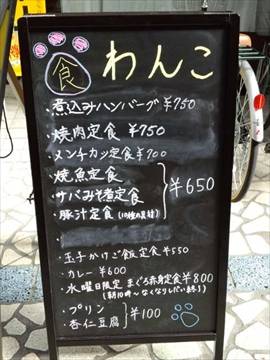 食 わんこ
・煮込みハンバーグ ¥750
・焼肉定食 ¥750
・メンチカツ定食 ¥700
・焼魚定食
・サバみそ煮定食 ¥650
・豚汁定食 (10種の具材)
・玉子かけご飯定食 ¥550
・カレー ¥600
・水曜日限定 まぐろ赤身定食 ¥800
(朝10時〜なくなりしだい終了)
・プリン
・杏仁豆腐 ¥100